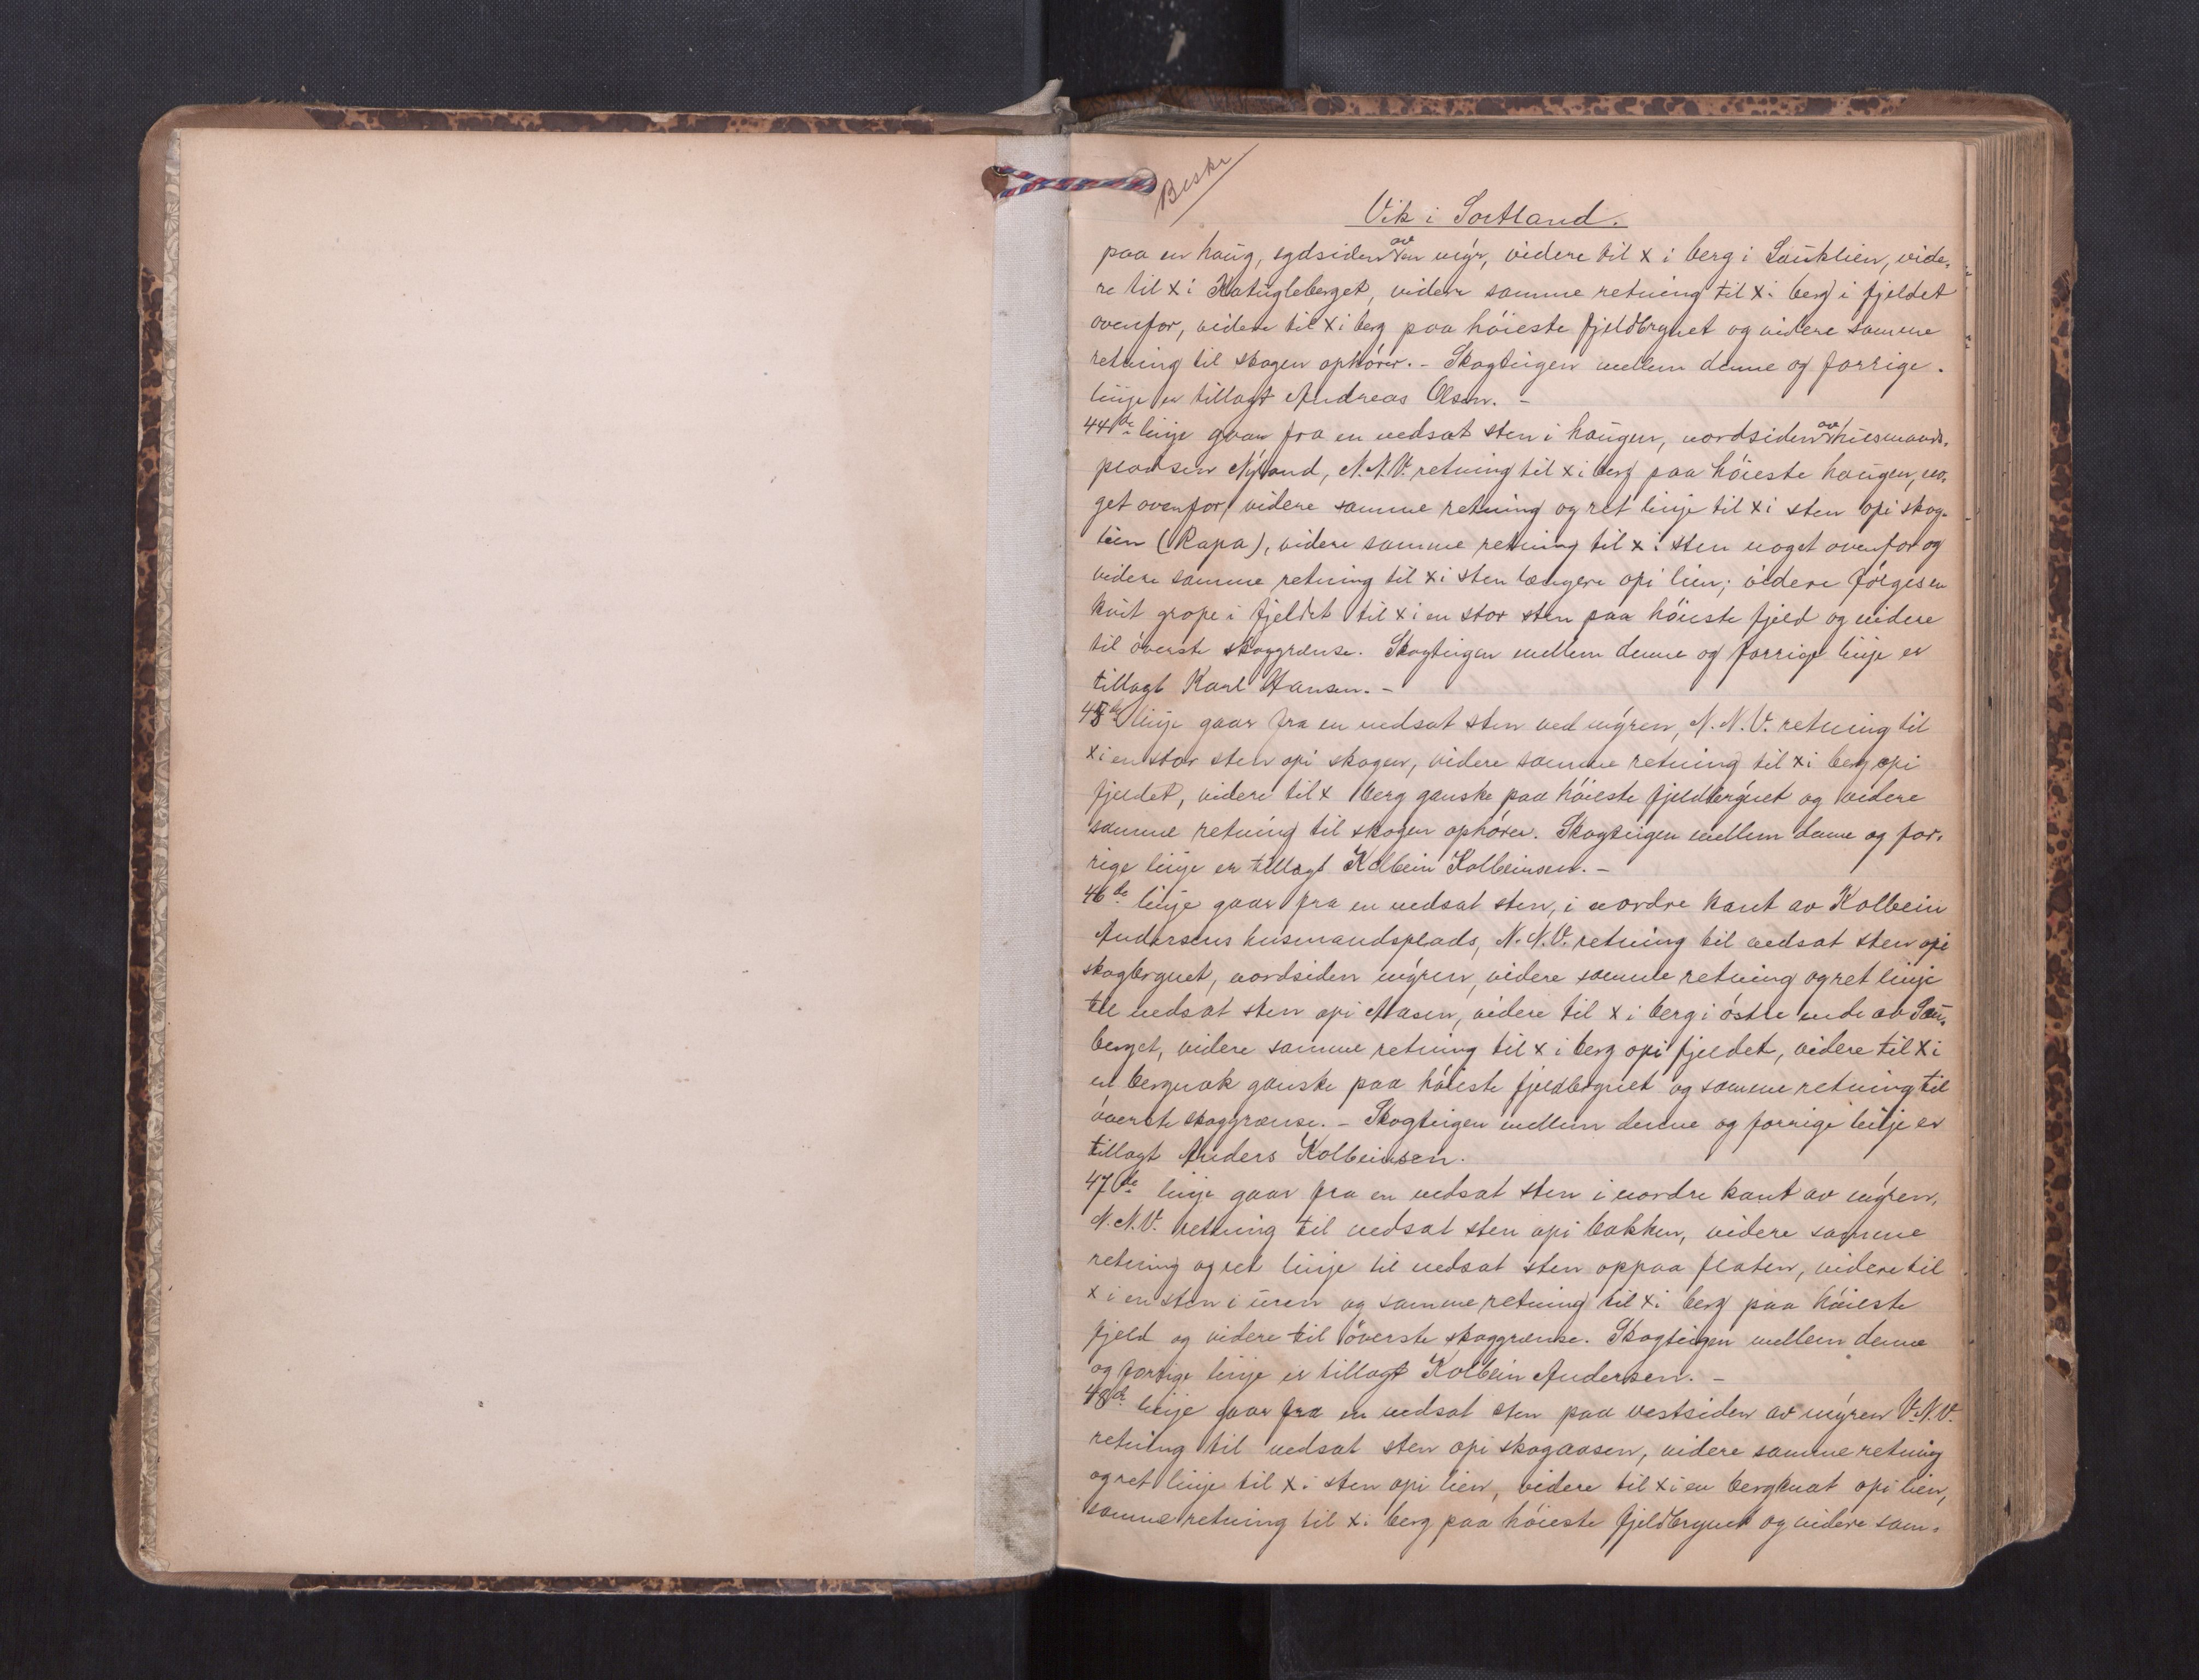 Beskr
Vik i Sortland.
paa en haug, sydsiden av en myr, videre til x i berg i Sauklien, vide-
re til x i Katugleberget, videre samme retning til x i berg i fjeldet
ovenfor, videre til x i berg paa høieste fjeldbrynet og videre samme
retning til skogen ophører. - Skogteigen mellem denne og forrige
linje er tillagt Andreas Olsen. -
44de linje gaar fra en nedsat sten i haugen, nordsiden av husmands-
pladsen Nyland, N.N.V. retning til x i berg paa høieste haugen, no-
get ovenfor, videre samme retning og ret linje til x i sten opi skog-
lien (Rapa), videre samme retning til x i sten noget ovenfor og
videre samme retning til x i sten længere opi lien; videre følges en
kvit grope i fjeldet til x i en stor sten paa høieste fjeld og videre
til øverste skoggrænse. Skogteigen mellem denne og forrige linje er
tillagt Karl Hansen. -
45de linje gaar fra en nedsat sten ved myren, N.N.V. retning til
x i en stor sten opi skogen, videre samme retning til x i berg opi
fjeldet, videre til x berg ganske paa høieste fjeldbrynet og videre
samme retning til skogen ophører. Skogteigen mellem denne og for-
rige linje er tillagt Kolbein Kolbeinsen. -
46de linje gaar fra en nedsat sten, i nordre kant av Kolbein
Andersens husmandsplads, N.N.V. retning til nedsat sten opi
skogbrynet, nordsiden myren, videre samme retning og ret linje
til nedsat sten opi Aasen, videre til x i berg i østre ende av Sau-
berget, videre samme retning til x i berg opi fjeldet, videre til x i
en bergnak ganske paa høieste fjeldbrynet og samme retning til
øverste skoggrænse. - Skogteigen mellem denne og forrige linje er
tillagt Anders Kolbeinsen.
47de linje gaar fra en nedsat sten i nordre kant av myren,
N.N.V. retning til nedsat sten opi bakken, videre samme
retning og ret linje til nedsat sten oppaa flaten, videre til
x i en sten i uren og samme retning til x i berg paa høieste
fjeld og videre til øverste skoggrænse. Skogteigen mellem denne
og forrige linje er tillagt Kolbein Andersen. -
48de linje gaar fra en nedsat sten paa vestsiden av myren V.N.V.
retning til nedsat sten opi skogaasen, videre samme retning
og ret linje til x i sten opi lien, videre til x i en bergknat opi lien,
samme retning til x i berg paa høieste fjeldbrynet og videre sam-